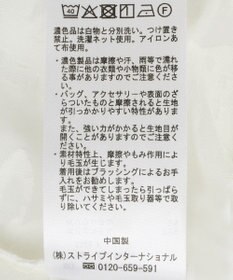 40
濃色品は白物と分別洗い。つけ置き
禁止。洗濯ネット使用。アイロンあ
て布使用。
・濃色製品は摩擦や汗、雨等で濡れ
た際に他の衣類や小物類に色が移
る事がありますのでご注意くださ
い。
・バッグ、アクセサリーや表面のざ
らついたものと摩擦されると生地
が引っかかりやすい特性がありま
す。
また、強い力がかかると生地目が
開くことがありますのでご注意く
ださい。
・素材特性上、摩擦やもみ作用によ
り毛玉が生じます。
着用後はブラッシングによるお手
入れをお勧めします。
毛玉ができてしまったら引っぱらず
に、ハサミや毛玉取り器等で取
り除いてください。
中国製
(株)ストライプインターナショナル
0120-659-591